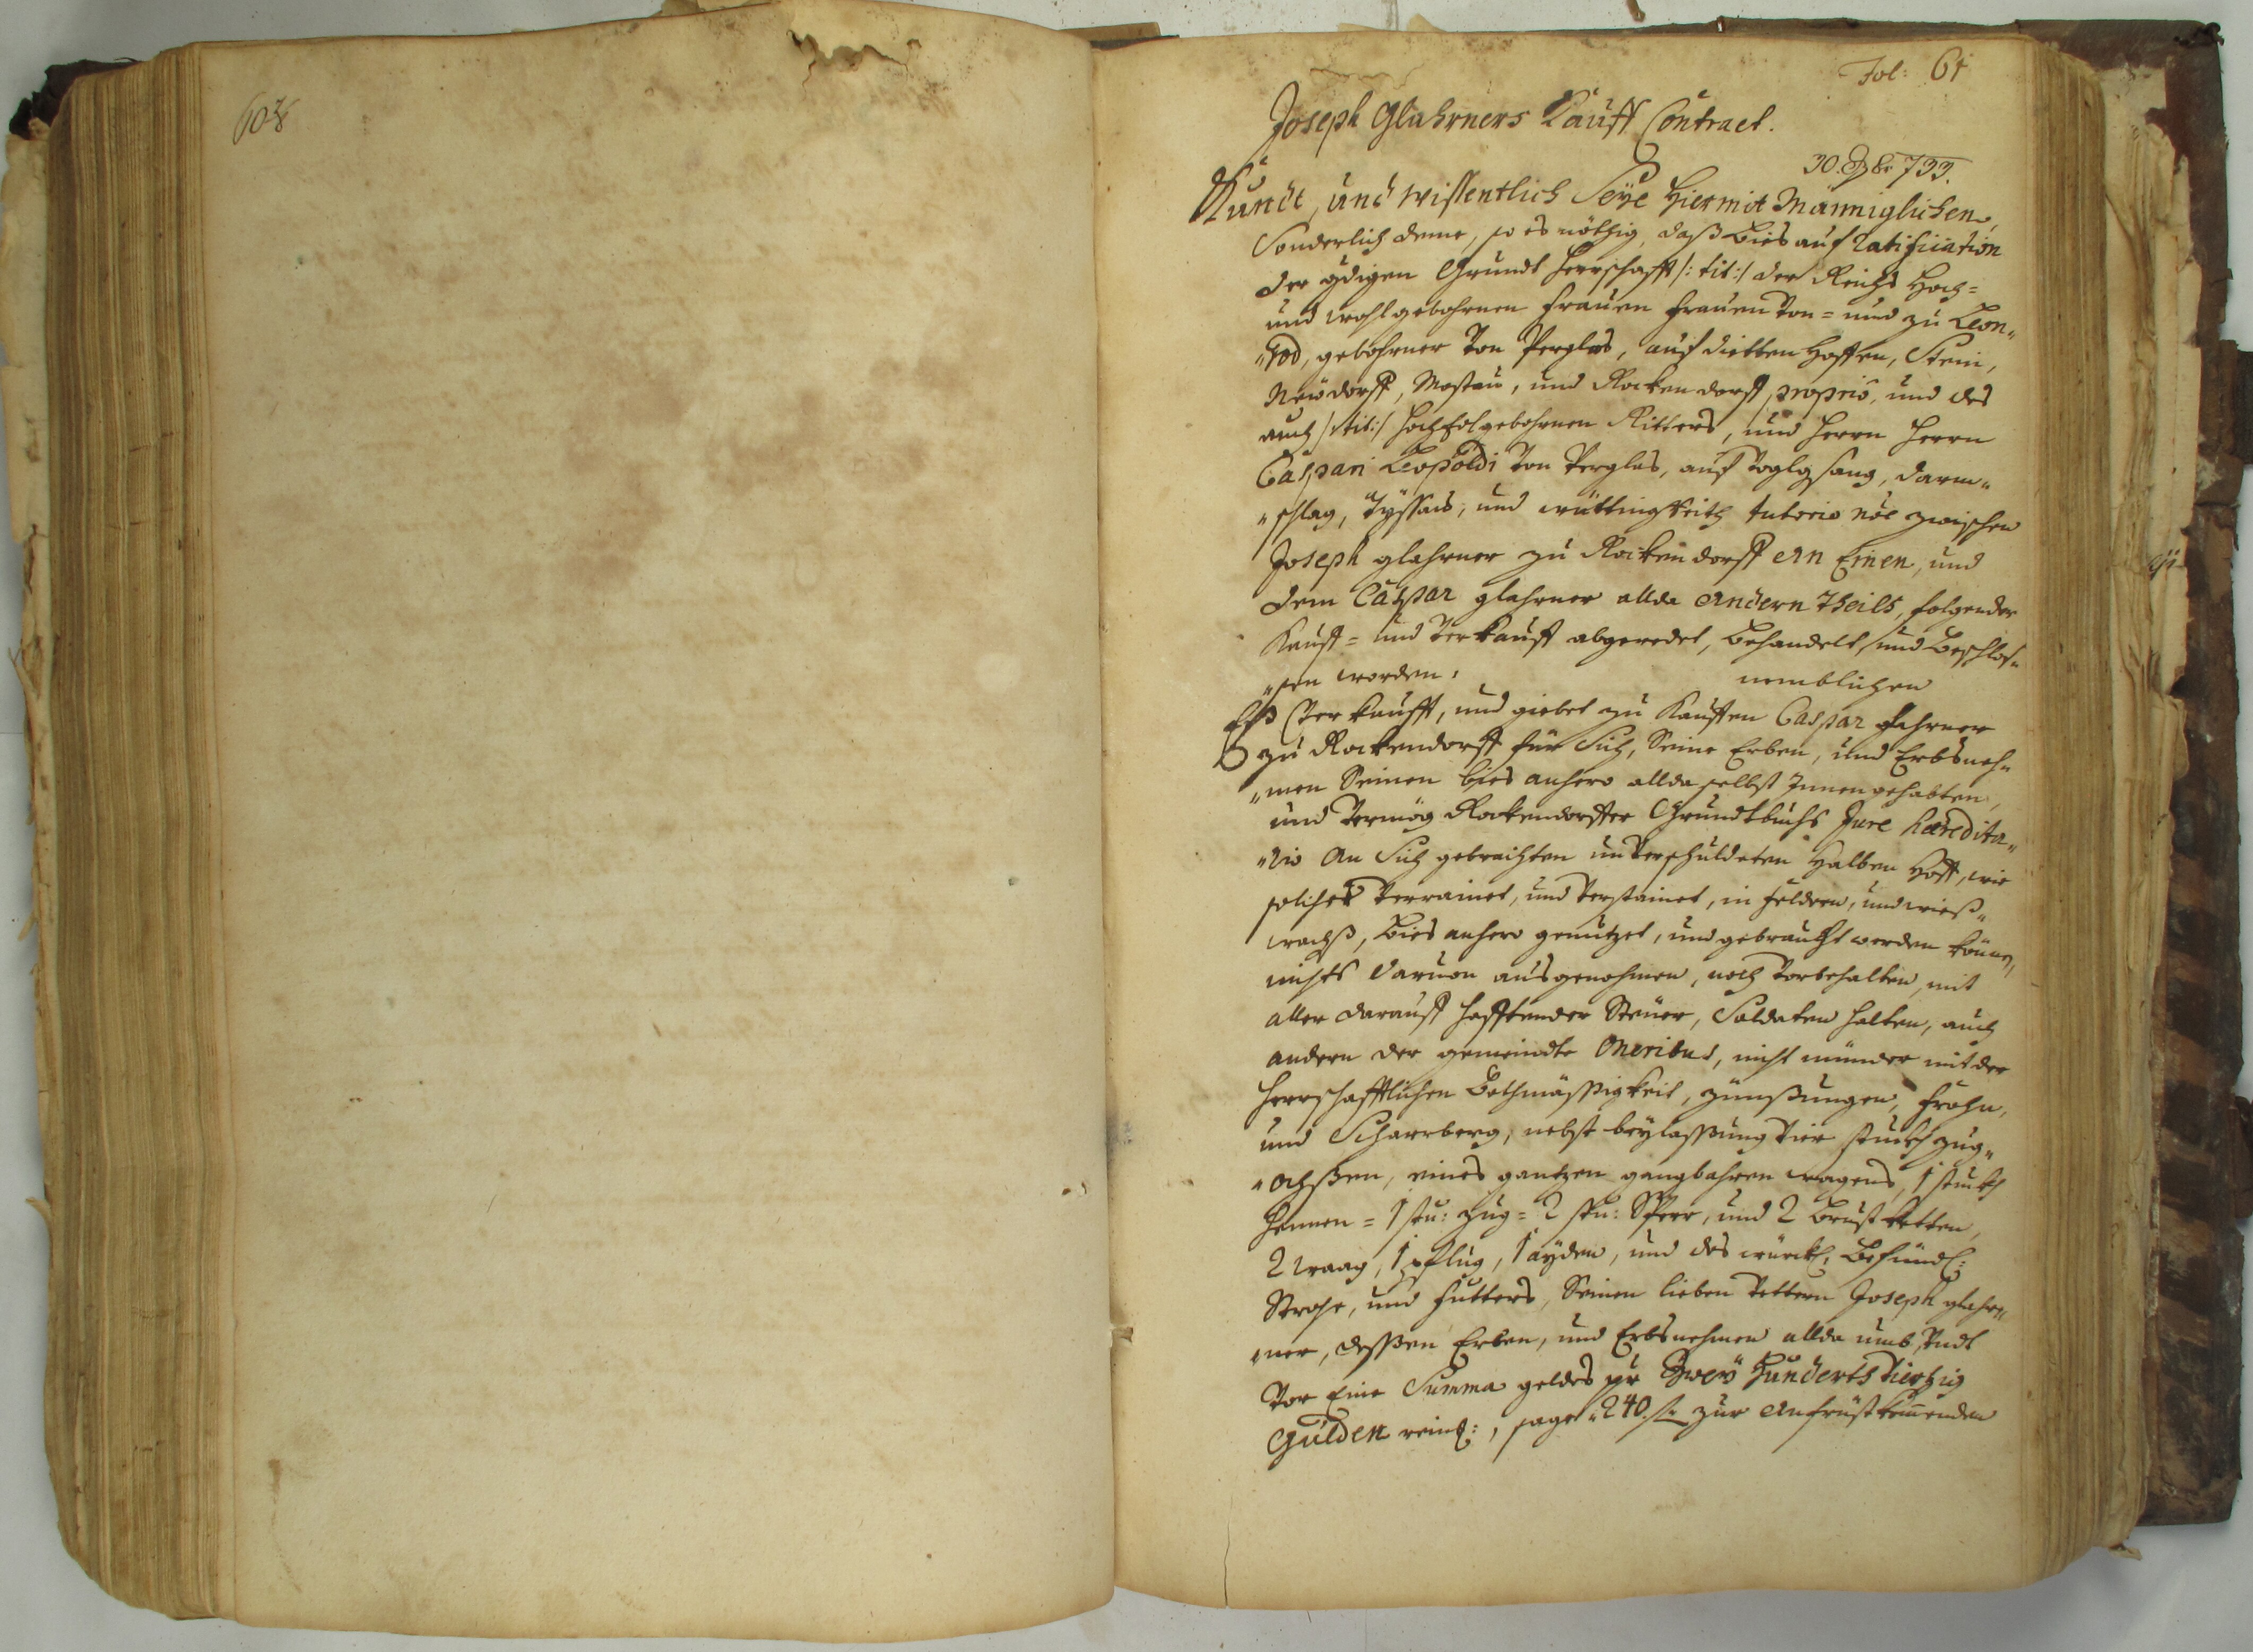 Fol: 61
Joseph Glahrners Kauff Contract.
30. 8br 733.
Kundt, und wissentlich Seÿe hiermit Männiglichen,
Sonderlich deme, so es nöthig, daß bies auf Ratification
der gdigen Grundt Herrschafft /: tit :/ der Reichs Hoch=
und wohlgebohrnen Frauen Frauen von= und zu Leon„
„rod, gebohrner von Perglas, auf Stein,
Neüdorff, Mostau, und Rockendorff, proprio, und des
auch /: tit :/ Hochedlgebohrnen Ritters, und Herrn Herrn
Caspari Leopoldi von Perglas, auf Darm„
„schlag, und tutorio nõe zwischen
Joseph glahrner zu Rockendorff An Einen, und
dem Caspar glahrner allda Andern Theils, folgender
Kauff= und verkauff abgeredet, behandelt, und beschlos„
„sen worden: nemblichen
Eß verkaufft, und giebet zu Kauffen Caspar glahrner
zu Rockendorff für Sich, Seine Erben, und Erbsneh„
„men Seinen bies anhero allda selbst Innengehabten,
und vermög Rockendorffer Grundtbuchs Jure hæredita„
„rio An Sich gebrachten unverschuldeten Halben Hoff, wie
solicher verrainet, und verstainet, in Feldern, und wieß„
wachß, bies anhero genutzet, und gebraucht werden könen,
nichts darvon ausgenohmen, noch vorbehalten, mit
aller darauff hafftender Steüer, Soldaten halten, auch
andern der gemeindte Oneribus, nicht münder mit der
Herrschafftlichen Bothmässigkeit, zünßungen, Frohn,
und Scharrberg, nebst beÿlassung vier stuckh zug„
„ochßen, eines gantzen gangbahren wagens, 1 stuckh
Hemen= 1 stu: zug= 2 stu: Spërr, und 2 Brust ketten,
2 waag, 1 pflug, 1 aÿden, und des würckl: befündl:
Strohe, und Futters, Seinen lieben Vettern Joseph glahr„
„ner, dessen Erben, und Erbsnehmen allda umb, undt
vor Eine Summa geldes pr Zweÿ Hundert Viertzig
Gulden reinl:, sage 240. fl. zur Anfrüst komenden